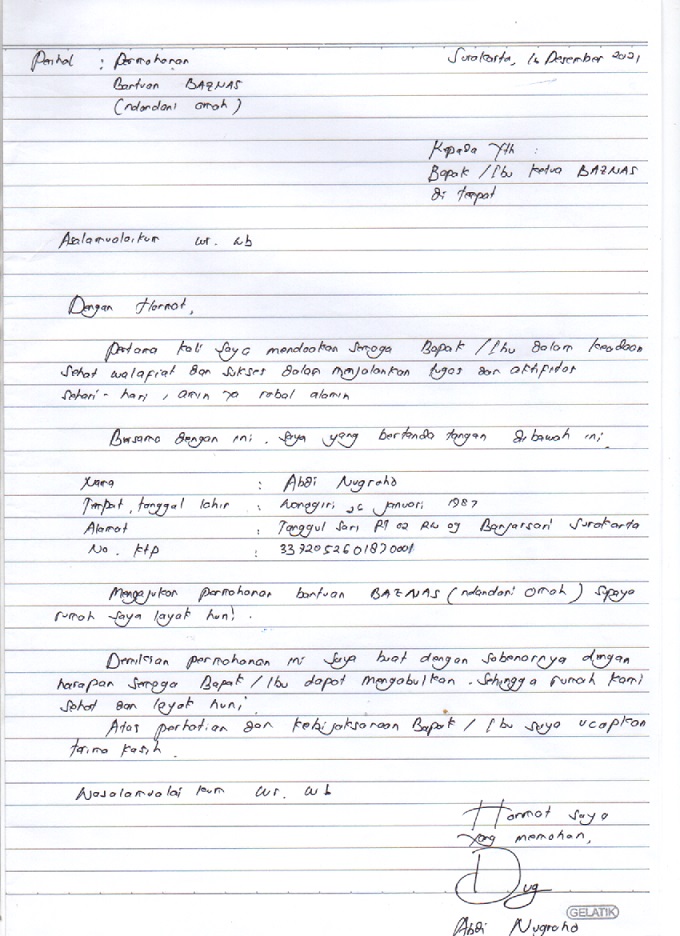 Perihal : Permohonan
Surakarta, 16 Desember 2021
Bantuan BAZNAS
(ndandani omah)
Kepada Yth :
Bapak / Ibu Ketua BAZNAS
di tempat
Asalamualaikum wr. wb
Dengan Hormat,
Pertama kali saya mendoakan semoga Bapak / Ibu dalam keadaan
sehat walafiat dan sukses dalam menjalankan tugas dan aktifitas
sehari - hari , amin ya robal alamin
Bersama dengan ini . saya yang bertanda tangan dibawah ini
Nama : Abdi Nugroho
Tempat, tanggal lahir : Wonogiri 26 januari 1987
Alamat : Tanggul Sari RT 02 RW 09 Banjarsari Surakarta
No. Ktp : 3372052601870001
Mengajukan permohonan bantuan BAZNAS (ndandani omah) supaya
rumah saya layak huni.
Demikian permohonan ini saya buat dengan sebenarnya dengan
harapan semoga Bapak / Ibu dapat mengabulkan . Sehingga rumah kami
sehat dan layak huni
Atas perhatian dan kebijaksanaan Bapak / Ibu saya ucapkan
terima kasih.
Wasalamualai kum wr. wb
Hormat saya
yang memohon,
Abdi Nugroho
GELATIK